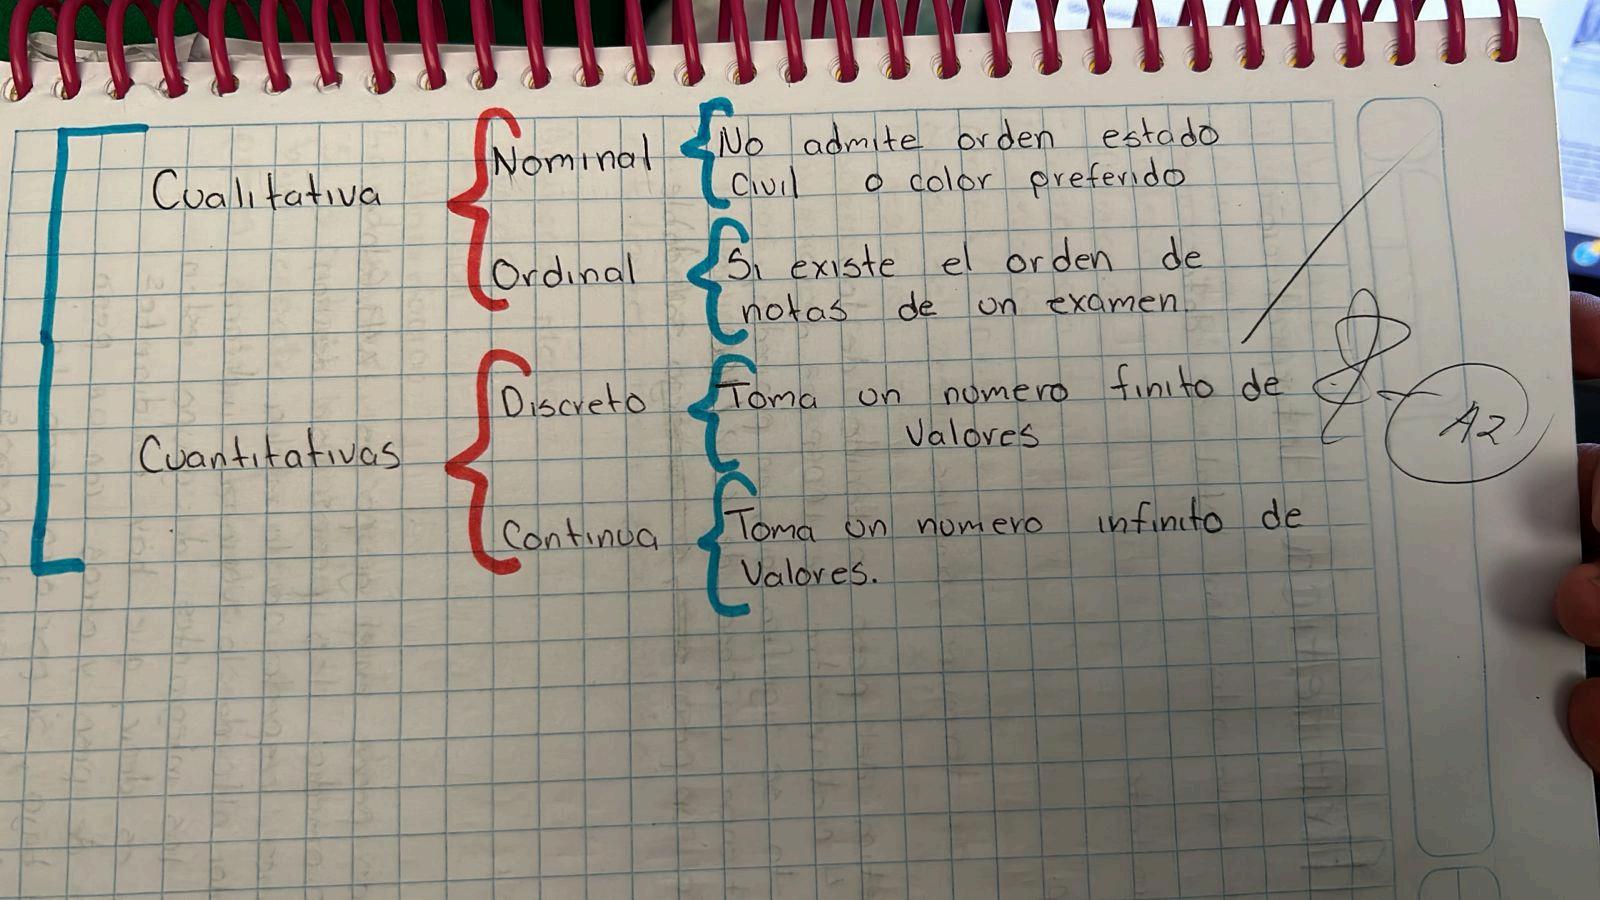 Cualitativa
Nominal
No admite orden estado
Civil o color preferido
Ordinal
Si existe el orden de
notas de un examen
Cuantitativas
Discreto
Toma un numero finito de
Valores
Continua
Toma un numero infinito de
Valores.
A2